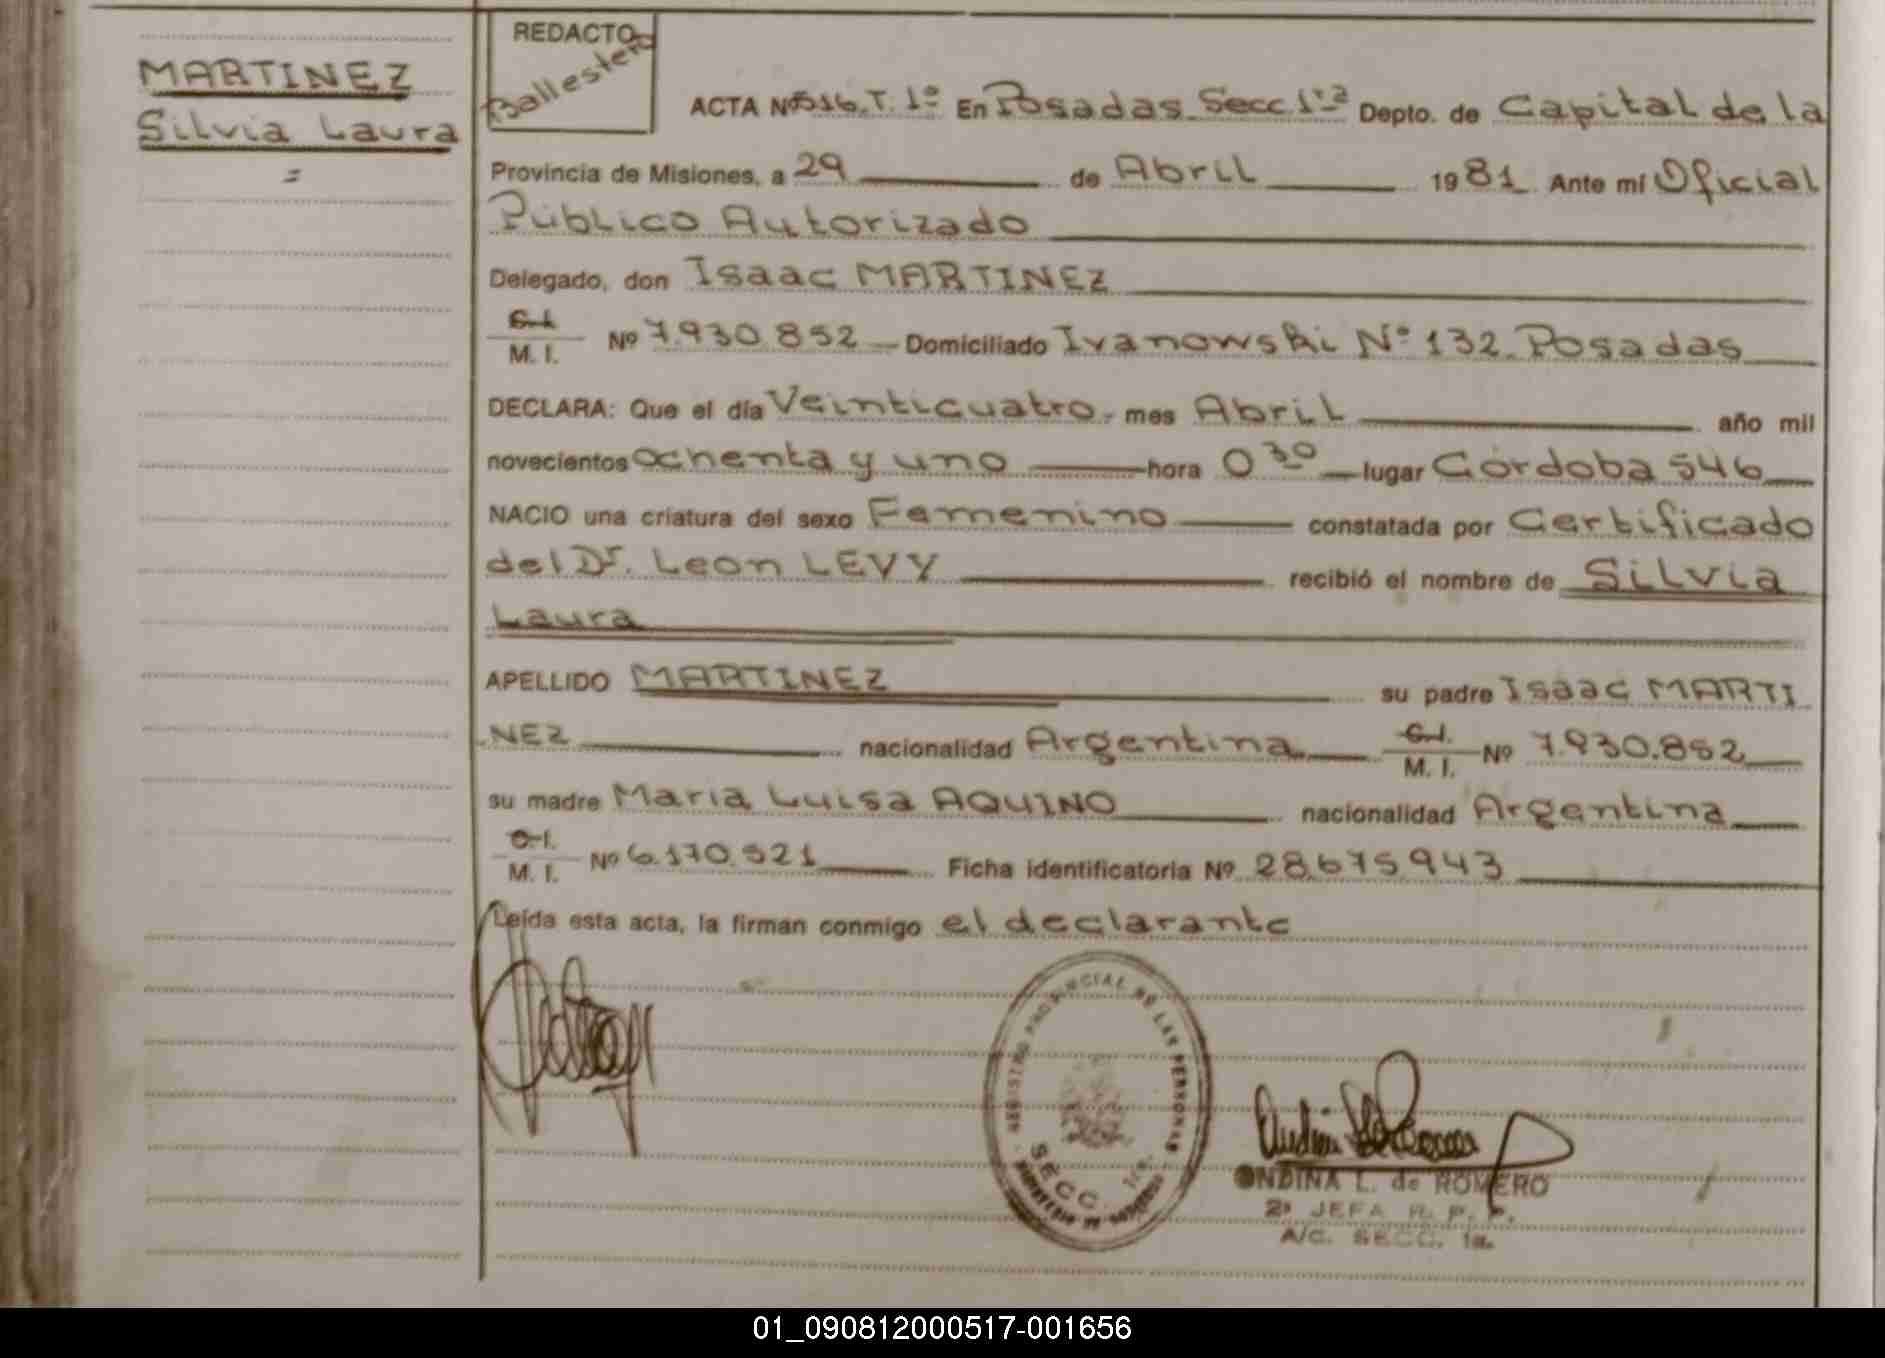 MARTINEZ
Silvia Laura
=
REDACTO
Ballestero
ACTA Nº 516.T.1º En Posadas Secc 1ra Depto. de Capital de la
Provincia de Misiones, a 29 de Abril 1981 Ante mí Oficial
Público Autorizado
Delegado, don Isaac MARTINEZ
C.I.
M. I. Nº 7.930.852 Domiciliado Ivanowski Nº 132 Posadas
DECLARA: Que el día Veinticuatro mes Abril año mil
novecientos ochenta y uno hora 0 30 lugar Córdoba 546
NACIO una criatura del sexo Femenino constatada por Certificado
del Dr. Leon LEVY recibió el nombre de Silvia
Laura
APELLIDO MARTINEZ su padre Isaac MARTI
NEZ nacionalidad Argentina C.I. M. I. Nº 7.930.852
su madre Maria Luisa AQUINO nacionalidad Argentina
C.I.
M. I. Nº 6.170.521 Ficha identificatoria Nº 28.675.943
Leída esta acta, la firman conmigo el declarante
REGISTRO PROVINCIAL DE LAS PERSONAS
SECC. 1ra.
MINISTERIO DE GOBIERNO
ONDINA L. de ROMERO
2ª JEFA R. P. P.
A/C. SECC. 1a.
01_090812000517-001656